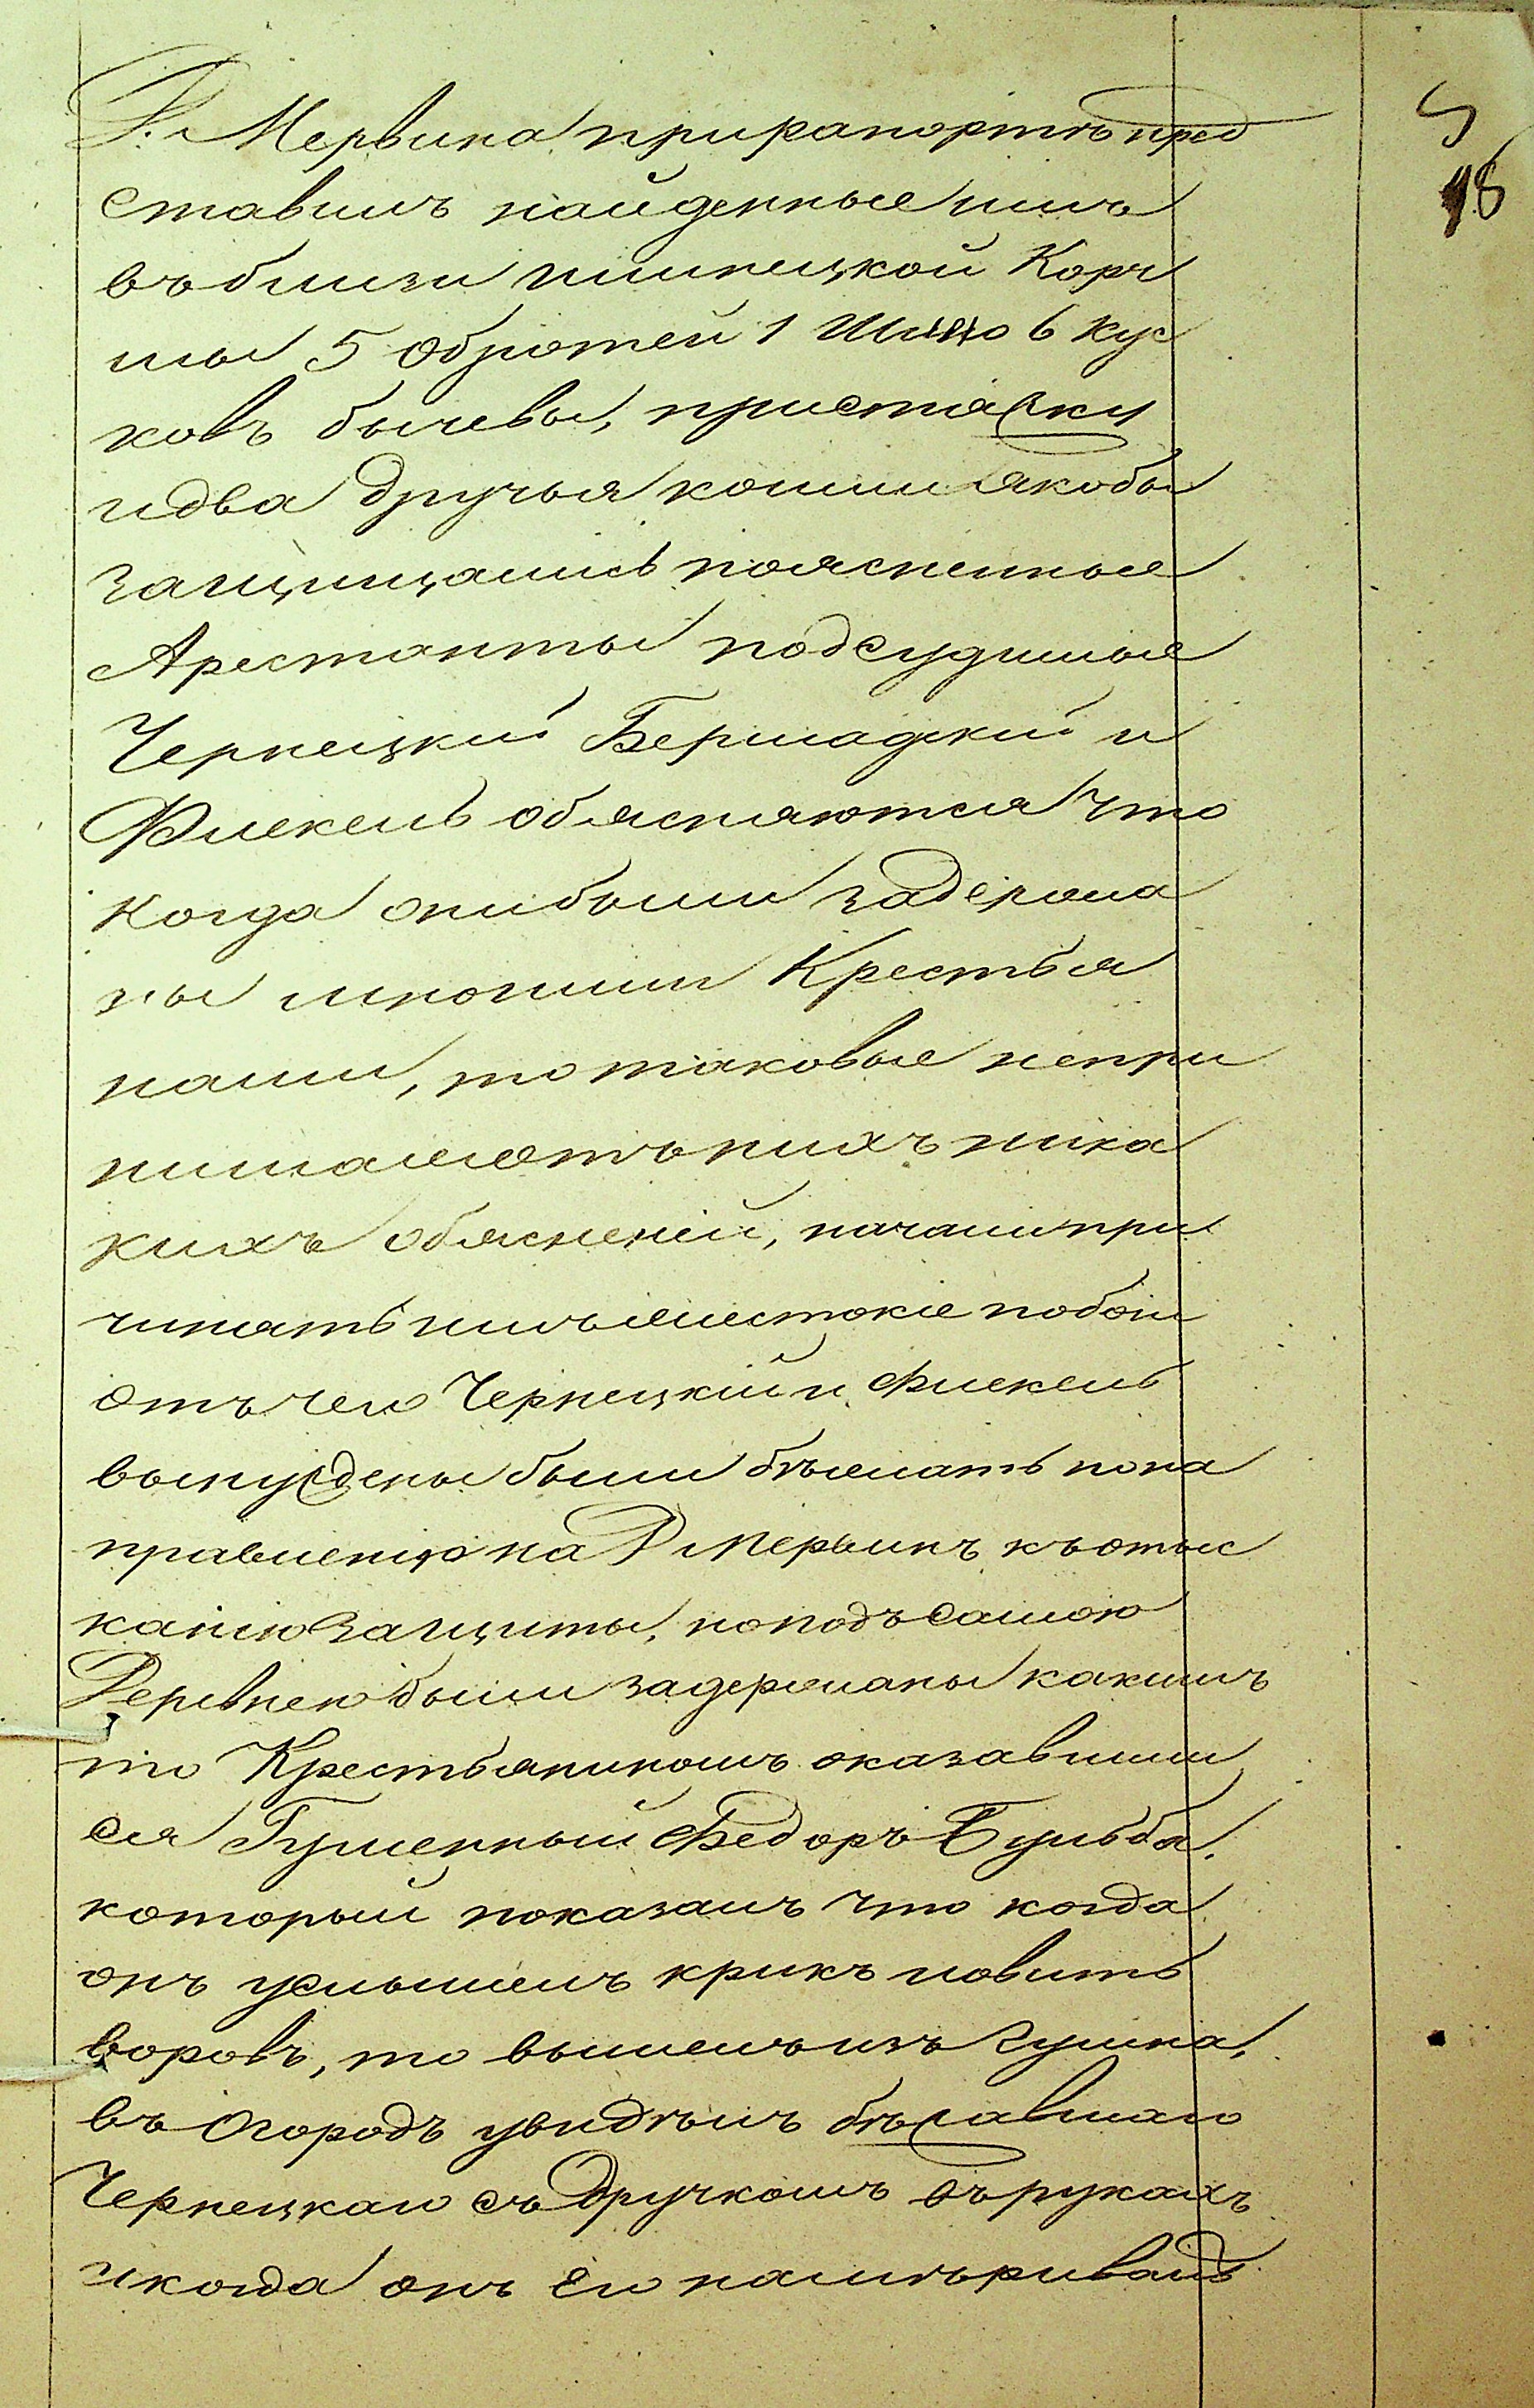 Д. Мервина при рапортѣ пред
ставилъ найденные имъ
въ близи Минецкой Корч
мы 5 Обротей 1 Шило 6 кус
ковъ бычевы, приставки
и два дручья коими якобы
защищались поясненные
Арестанты подсудимые
Чернецкий Бершадский и
Флекель обясняются что
когда они были задержа
ны многими Крестья
нами, то таковые непри
нимая отъ нихъ ника
кихъ обяснений, начали при
чинять имъ жестокіе побои
отъ чего Чернецкій и Флекель
вынуждены были бѣжать по на
правленію на Д Мервинъ къ отыс
канію защиты, но подъ самою
Деревнею были задержаны какимъ
то Крестьяниномъ оказавшим
ся Гуменный Федоръ Бульба,
который показалъ что когда
онъ услышелъ крикъ ловить
воровъ, то вышелъ изъ гумна,
въ Огородъ увидѣлъ бѣжавшаго
Чернецкаго съ дручкомъ въ рукахъ
и когда онъ Его намѣривалъ
5
18